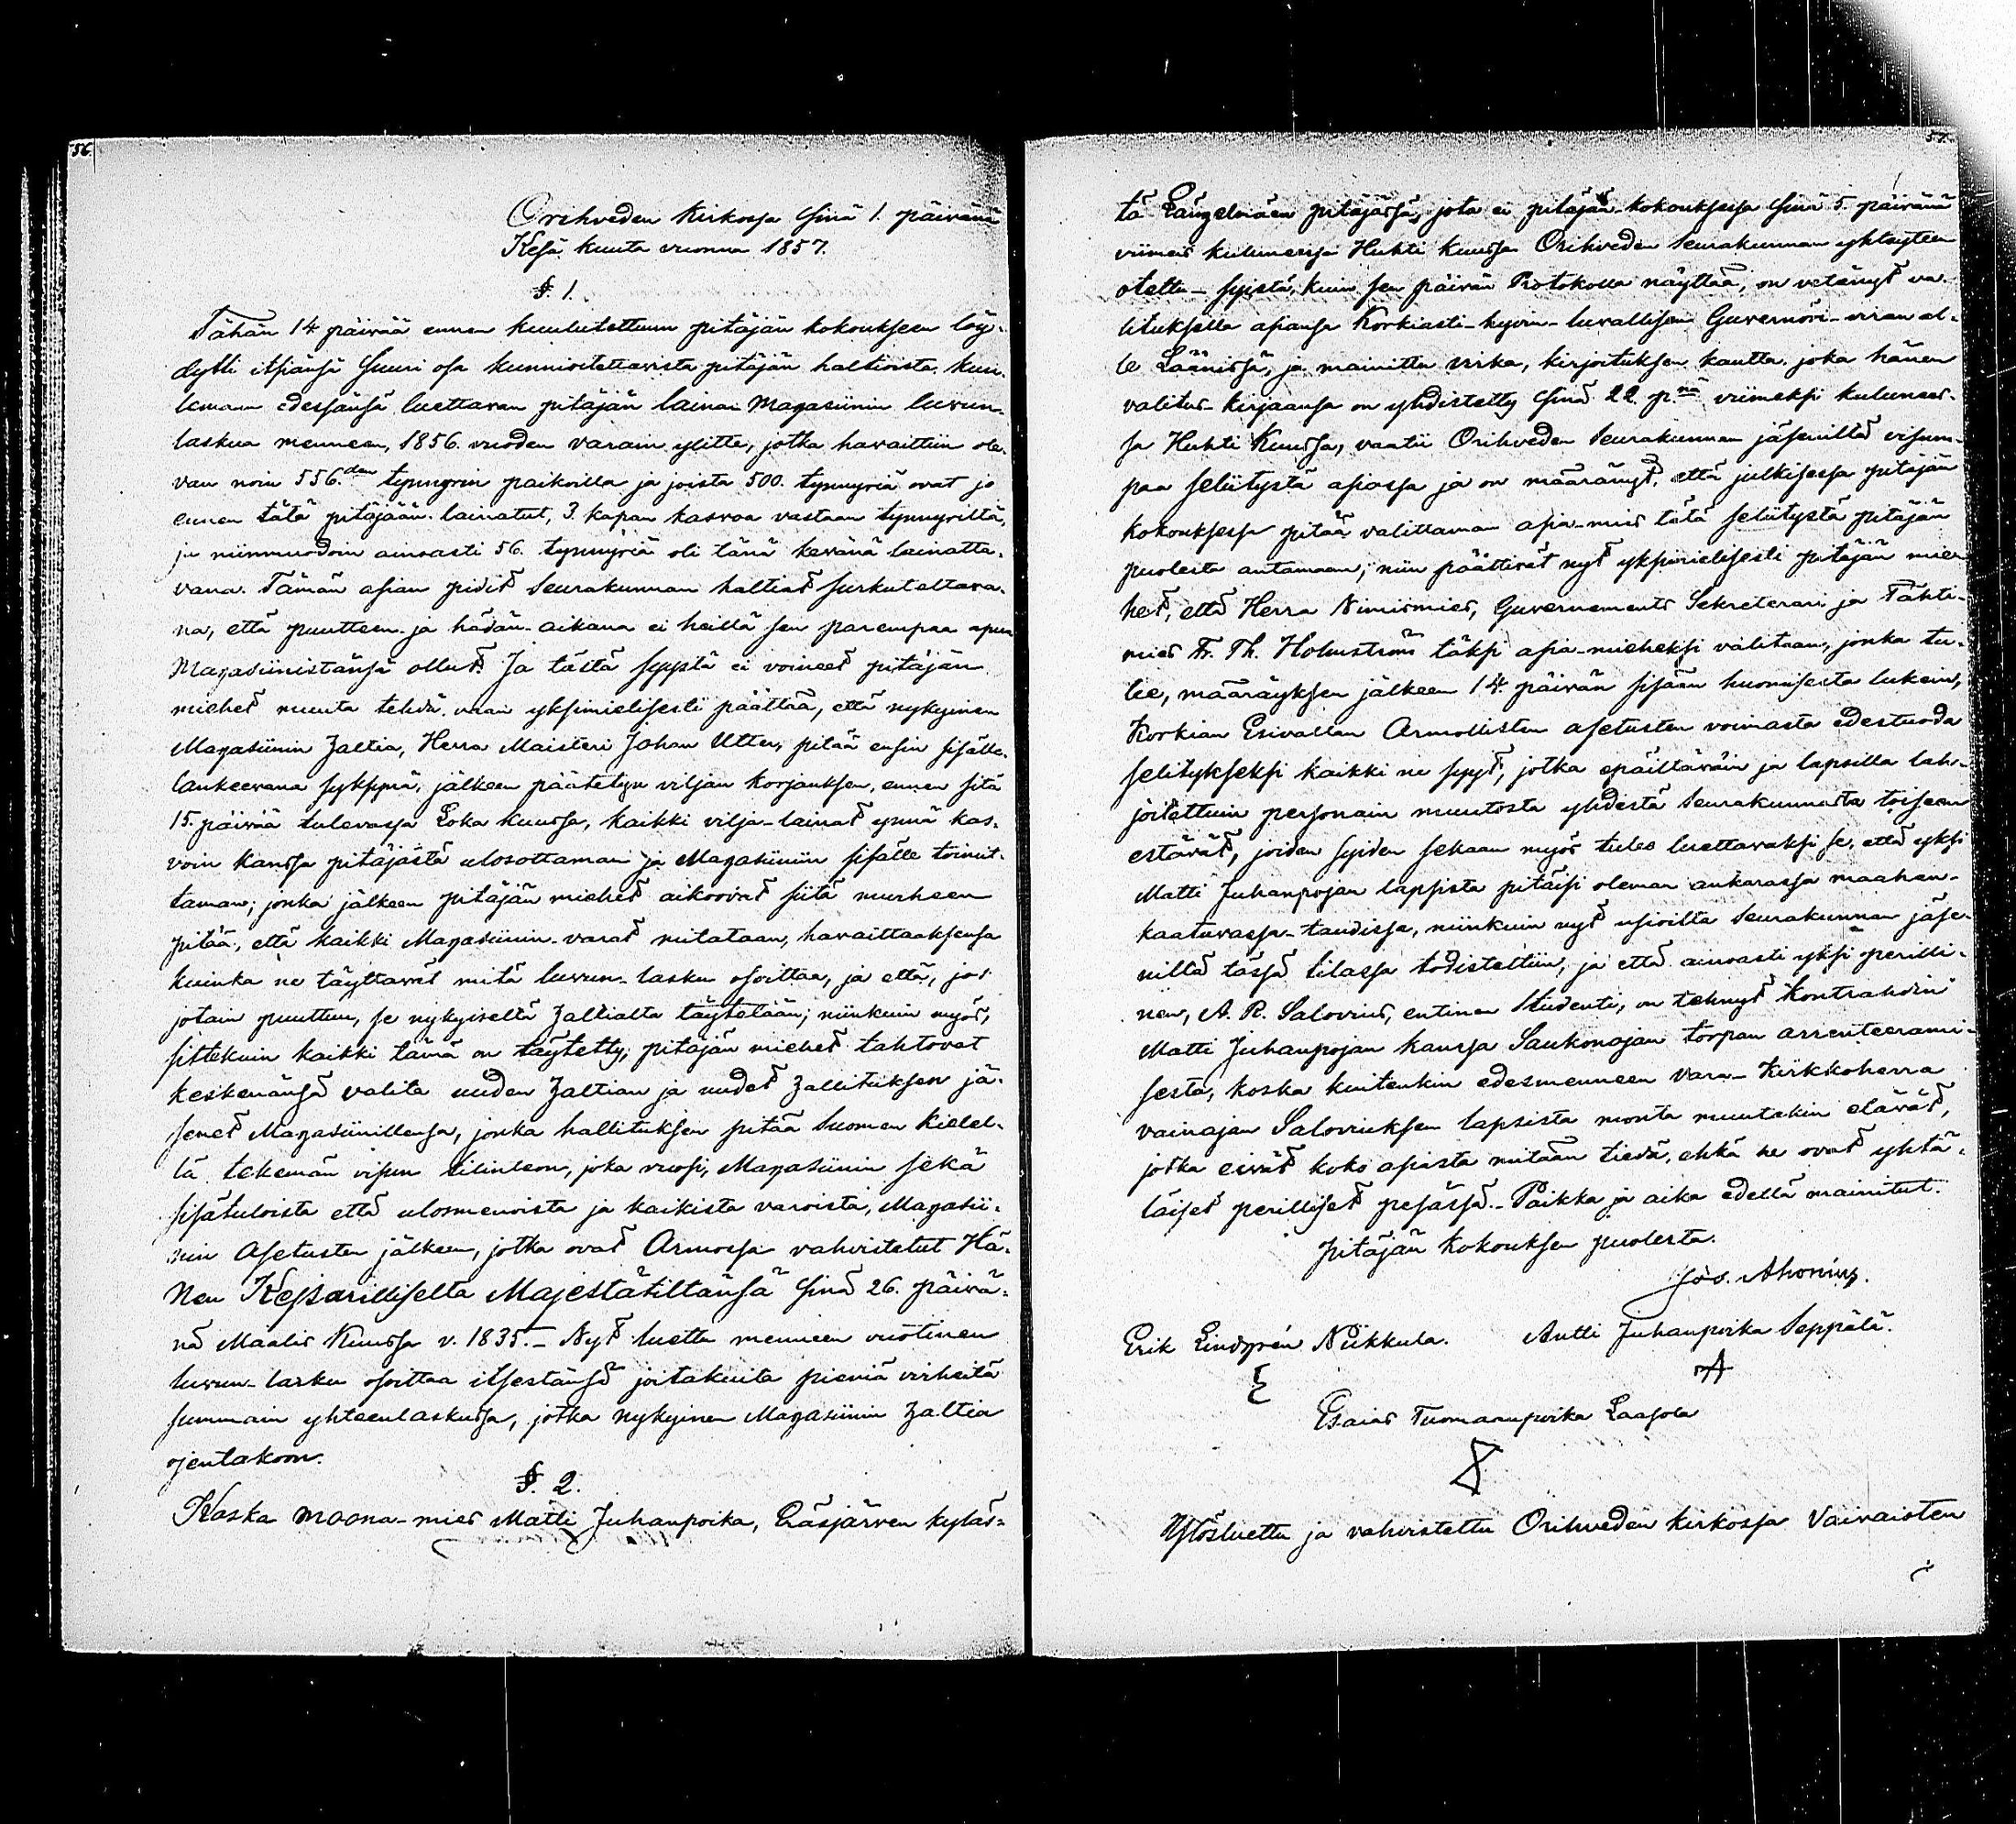 56.
Orihveden Kirkossa sinä 1. päivänä
Kesä kuuta vuonna 1857.
§. 1.
Tähän 14 päivää ennen kuulutettuun pitäjän kokoukseen löy-
dytti itsiänsä suuri osa kunnioitettavista pitäjän haltioista kuu-
lemaan edessänsä luettavan pitäjän laina Magasiinin luvun-
laskua menneen, 1856. vuoden varain ylitte, jotka havaittiin ole-
van noin 556.den tynnyrin paikoilla ja joista 500. tynnyriä ovat jo
ennen tätä pitäjään lainatut, 3. kapan kasvoa vastaan tynnyriltä,
ja niinmuodoin ainoasti 56. tynnyriä oli tänä kevänä lainatta-
vana. Tämän asian pidit Seurakunnan haltiat surkuteltava-
na, että puutteen- ja hädän-aikana ei heillä sen parempaa apua
Magasiinistansa ollut. Ja tästä syystä ei voineet pitäjän
miehet muuta tehdä, vaan yksimielisesti päättää, että nykyinen
Magasiinin Haltia, Herra Maisteri Johan Utter, pitää ensin sisälle-
lankeevana syksynä, jälkeen päätetyn viljan korjauksen, ennen sitä
15. päivää tulevassa Loka kuussa, kaikki vilja-lainat ynnä kas-
voin kanssa pitäjästä ulosottaman ja Magasiiniin sisälle toimit-
taman; jonka jälkeen pitäjän miehet aikoovat siitä murheen
pitää, että kaikki Magasiinin-varat mitataan, havaittaaksensa
kuinka ne täyttävät mitä luvun-lasku osoittaa, ja että, jos
jotain puuttuu, se nykyiseltä Haltialta täytetään; niinkuin myös,
sittekuin kaikki tämä on täytetty, pitäjän miehet tahtovat
keskenänsä valita uuden Haltian ja uudet Hallituksen jä-
senet Magasiinillensa, jonka hallituksen pitää Suomen kielel-
lä tekemän visun tilinteon, joka vuosi, Magasiinin sekä
sisätuloista että ulosmenoista ja kaikista varoista, Magasii-
nin Asetusten jälkeen, jotka ovat Armossa vahvistetut Hä-
Nen Keisarilliselta Majestätiltänsä sinä 26. päivä-
nä Maalis Kuussa v. 1835. - Nyt luettu menneen vuotinen
luvun-lasku osoittaa itsestänsä joitakuita pieniä virheitä
summain yhteenlaskussa, jotka nykyinen Magasiinin Haltia
ojentakoon.
§. 2.
Koska Moona-mies Matti Juhanpoika, Eräsjärven kyläs-
57.
tä Längelmäen pitäjässä, jota ei pitäjän-kokouksessa sinä 5. päivänä
viimeis kuluneessa Huhti kuussa Orihveden Seurakunnan yhteyteen
otettu - syistä, kuin sen päivän Protokolla näyttää, on vetänyt va-
lituksella asiansa Korkiasti-hyvin-luvallisen Guvernöri-viran al-
le Läänissä, ja mainittu virka, kirjoituksen kautta, joka hänen
valitus-kirjaansa on yhdistetty sinä 22 p:nä viimeksi kulunees-
sa Huhti Kuussa, vaatii Orihveden Seurakunnan jäseniltä visum-
paa selitystä asiassa ja on määrännyt, että julkisessa pitäjän
kokouksessa pitää valittaman asia-mies tätä selitystä pitäjän
puolesta antamaan; niin päättivät nyt yksimielisesti pitäjän mie-
het, että Herra Nimismies, Guvernements Sekreterari ja Tähti-
mies Fr. Th. Holmström täksi asia-mieheksi valitaan, jonka tu-
lee, määräyksen jälkeen 14. päivän sisään huomisesta lukein,
Korkian Esivallan Armollisten asetusten voimasta edestuoda
selitykseksi kaikki ne syyt, jotka epäiltäväin ja lapsilla lah-
joitettuin personain muutosta yhdestä Seurakunnasta toiseen
estävät, joiden syiden sekaan myös tulee luettavaksi se, että yksi
Matti Juhanpojan lapsista pitäisi oleman ankarassa maahan-
kaatuvassa-taudissa, niinkuin nyt usioilta Seurakunnan jäse-
niltä tässä tilassa todistettiin, ja että ainoasti yksi perilli-
nen, A. R. Salovius, entinen Studenti, on tehnyt Kontrahdin
Matti Juhanpojan kanssa Saukonojan torpan arrenteerami-
sesta, koska kuitenkin edesmenneen Vara-Kirkkoherra
vainajan Saloviuksen lapsista monta muutakin elävät,
jotka eivät koko asiasta mitään tiedä, ehkä ne ovat yhtä-
läiset perilliset pesässä. - Paikka ja aika edellä mainitut.
Pitäjän Kokouksen puolesta.
Jos. Ahonius.
Erik Lindgrén Niikkula. Antti Juhanpoika Seppälä.
Esaias Tuomaanpoika Laasola
Ylösluettu ja vahvistettu Orihveden kirkossa Vaivaisten